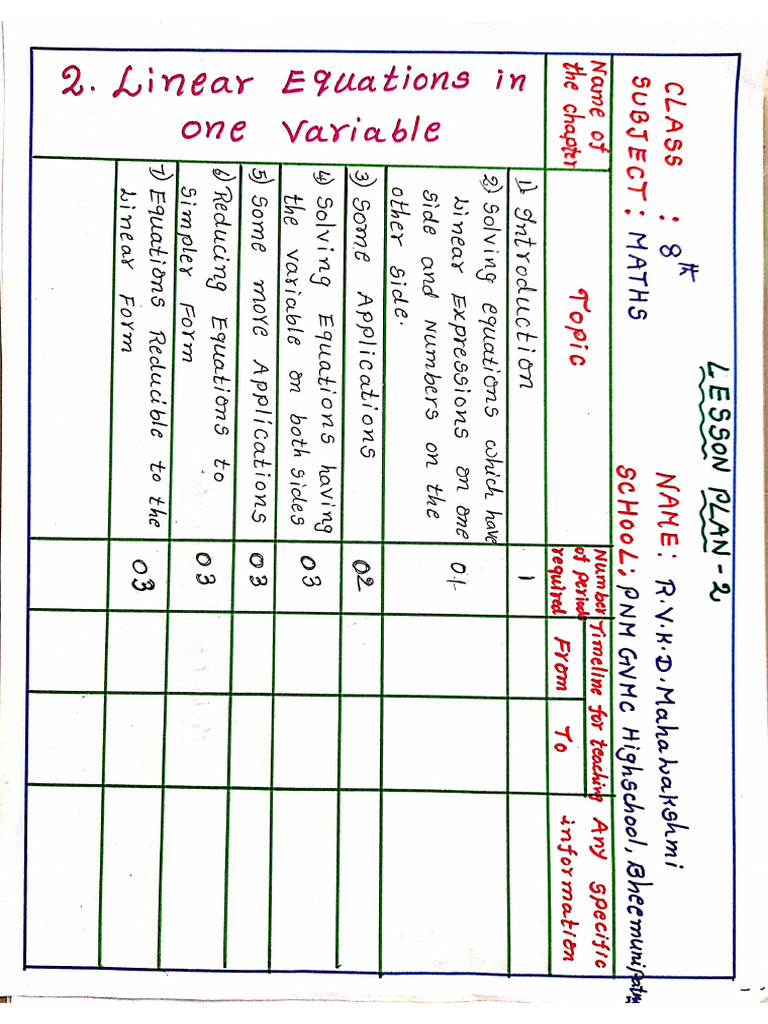 LESSON PLAN - 2
CLASS : 8th NAME: R.V.K.D. Mahalakshmi
SUBJECT: MATHS SCHOOL: PNM GVMC Highschool,
Name of the chapter
Topic
Number of periods required
Timeline for teaching
From
To
Any specific information
2. Linear Equations in
one Variable
1) Introduction
1
2) Solving equations which have
Linear Expressions on one
side and Numbers on the
other side.
3) Some Applications
02
4) Solving Equations having
the variable on both sides
03
5) Some more Applications
03
6) Reducing Equations to
Simpler Form
03
7) Equations Reducible to the
Linear Form
03